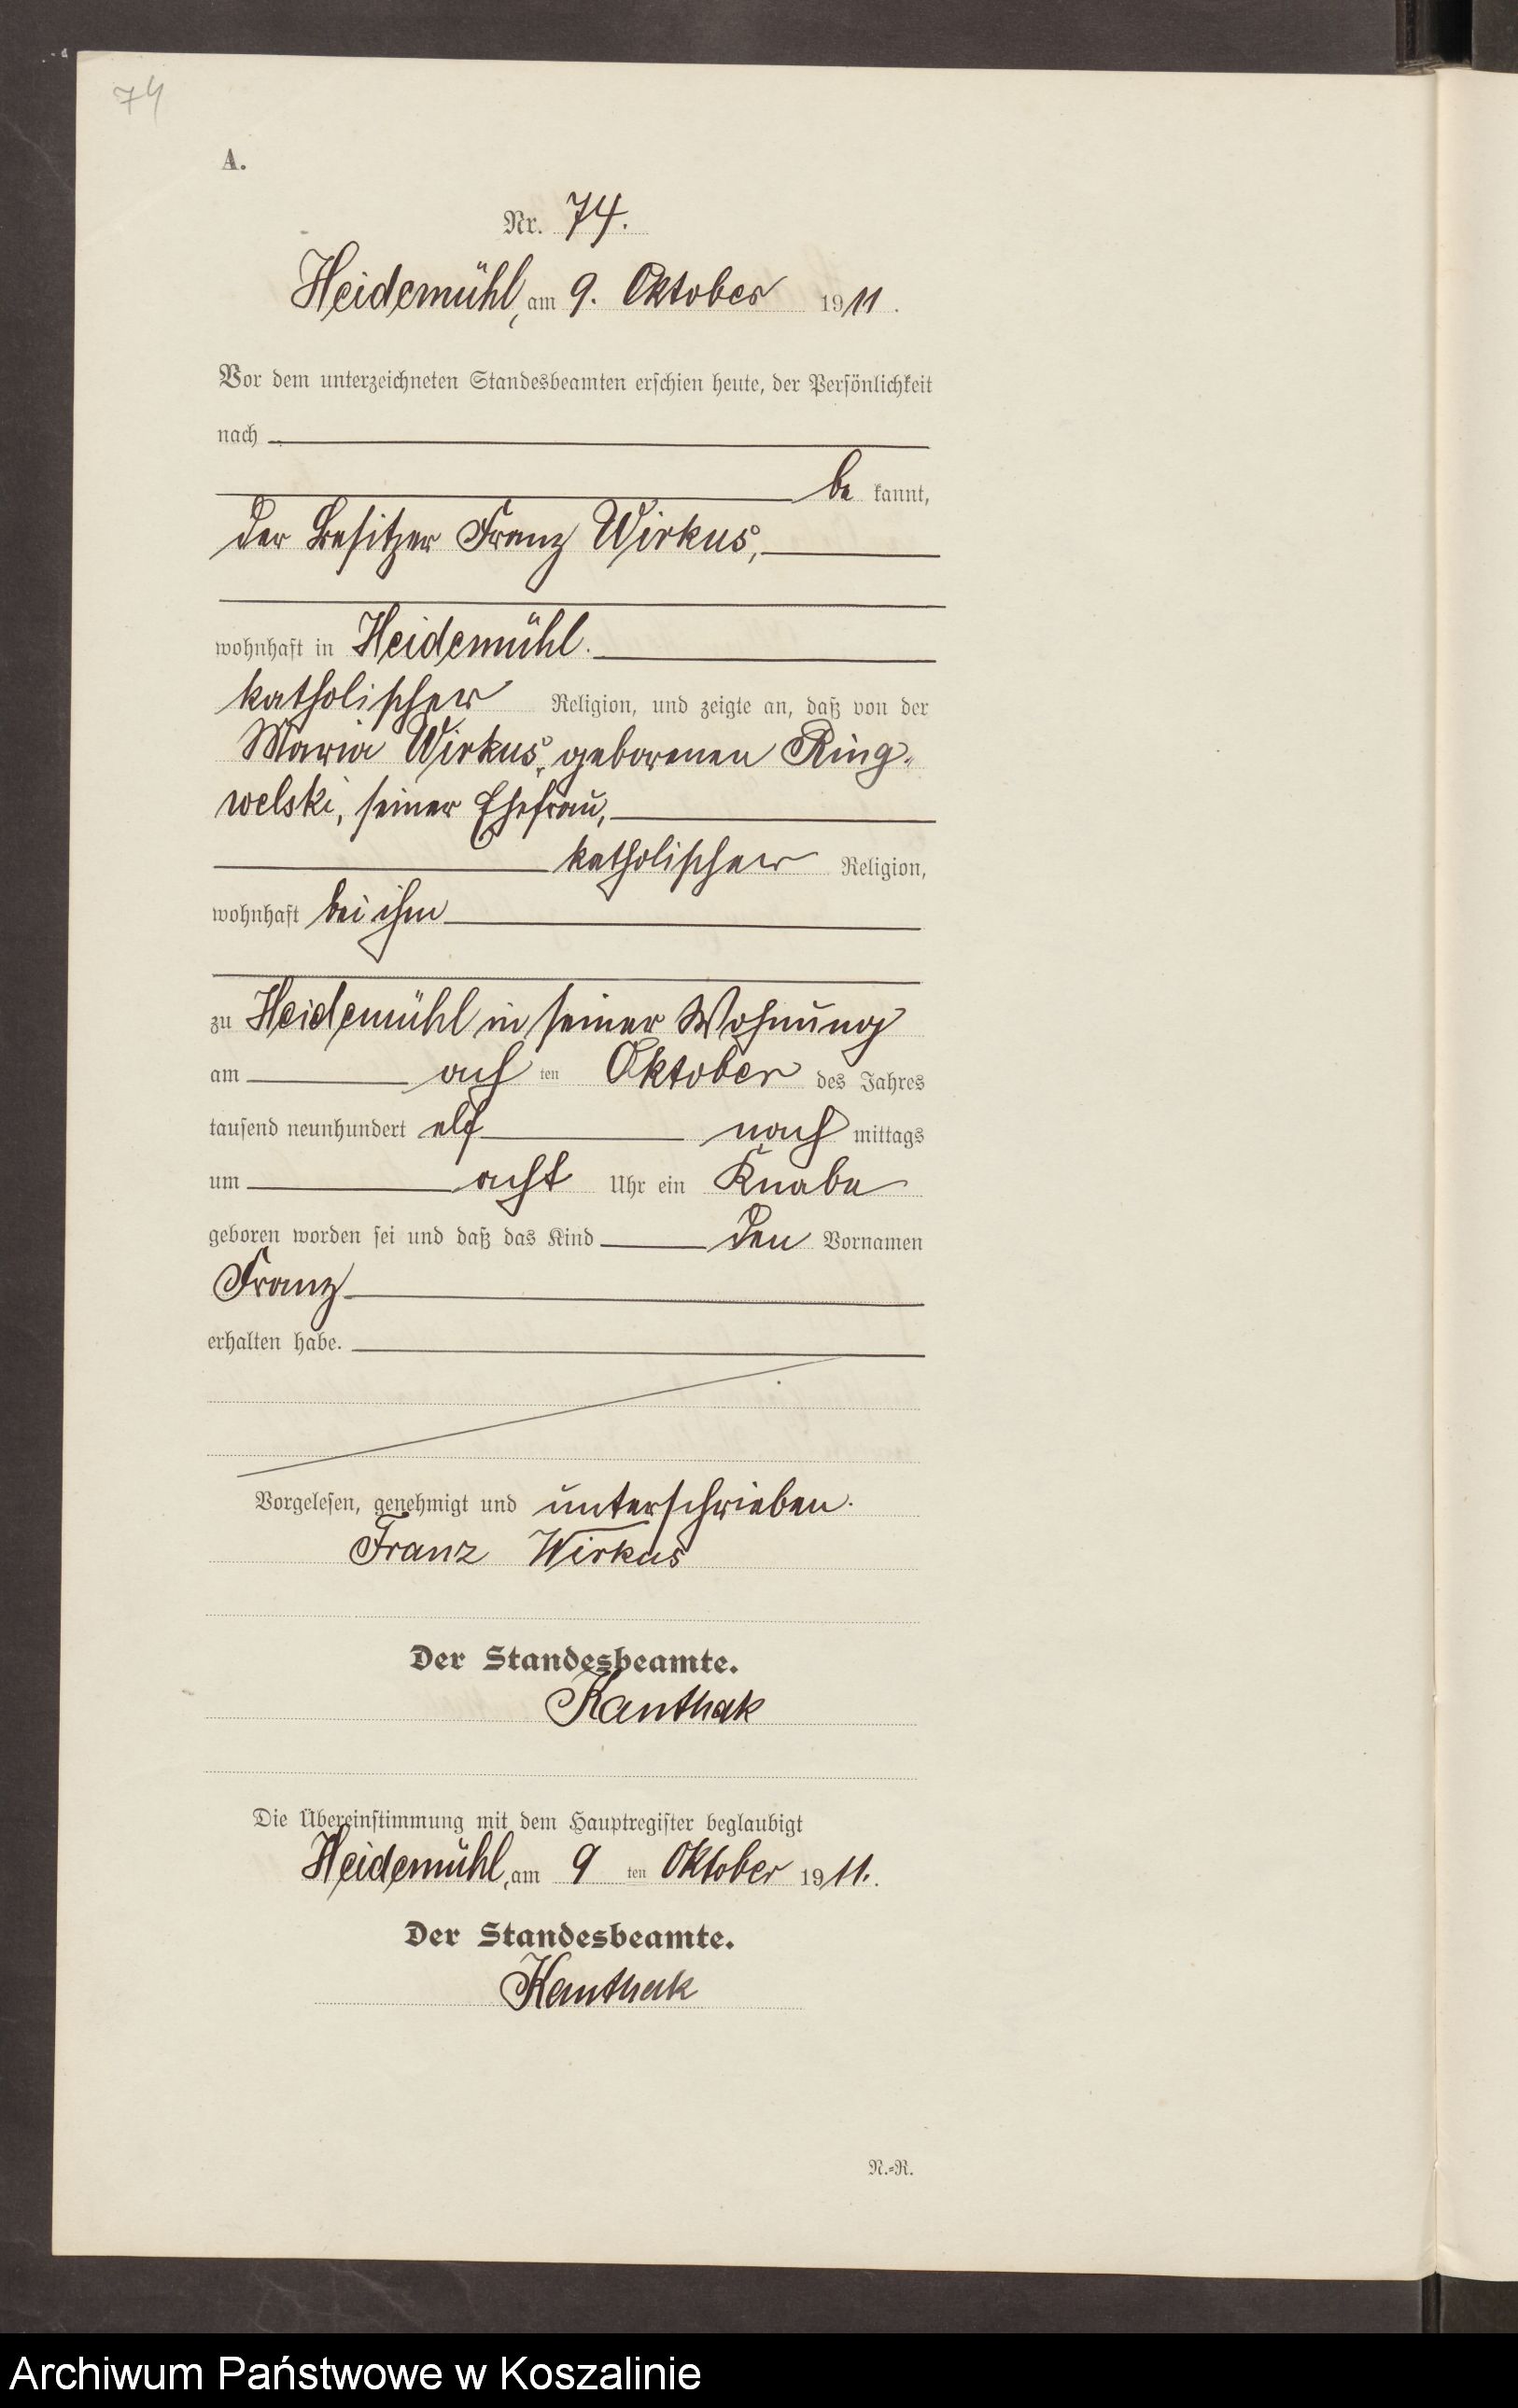 74
A.
Nr. 74.
Heidemühl, am 9. Oktober 1911.
Vor dem unterzeichneten Standesbeamten erschien heute, der Persönlichkeit
nach
be kannt,
der Besitzer Franz Wirkus,
wohnhaft in Heidemühl.
katholischer Religion, und zeigte an, daß von der
Maria Wirkus, geborenen Ring-
welski, seiner Ehefrau,
katholischer Religion,
wohnhaft bei ihm
zu Heidemühl in seiner Wohnung
am ach ten Oktober des Jahres
tausend neunhundert elf nach mittags
um acht Uhr ein Knabe
geboren worden sei und daß das Kind den Vornamen
Franz
erhalten habe.
Vorgelesen, genehmigt und unterschrieben.
Franz Wirkus
Der Standesbeamte.
Kanthak
Die Übereinstimmung mit dem Hauptregister beglaubigt
Heidemühl, am 9 ten Oktober 1911.
Der Standesbeamte.
Kanthak
N.-R.
Archiwum Państwowe w Koszalinie